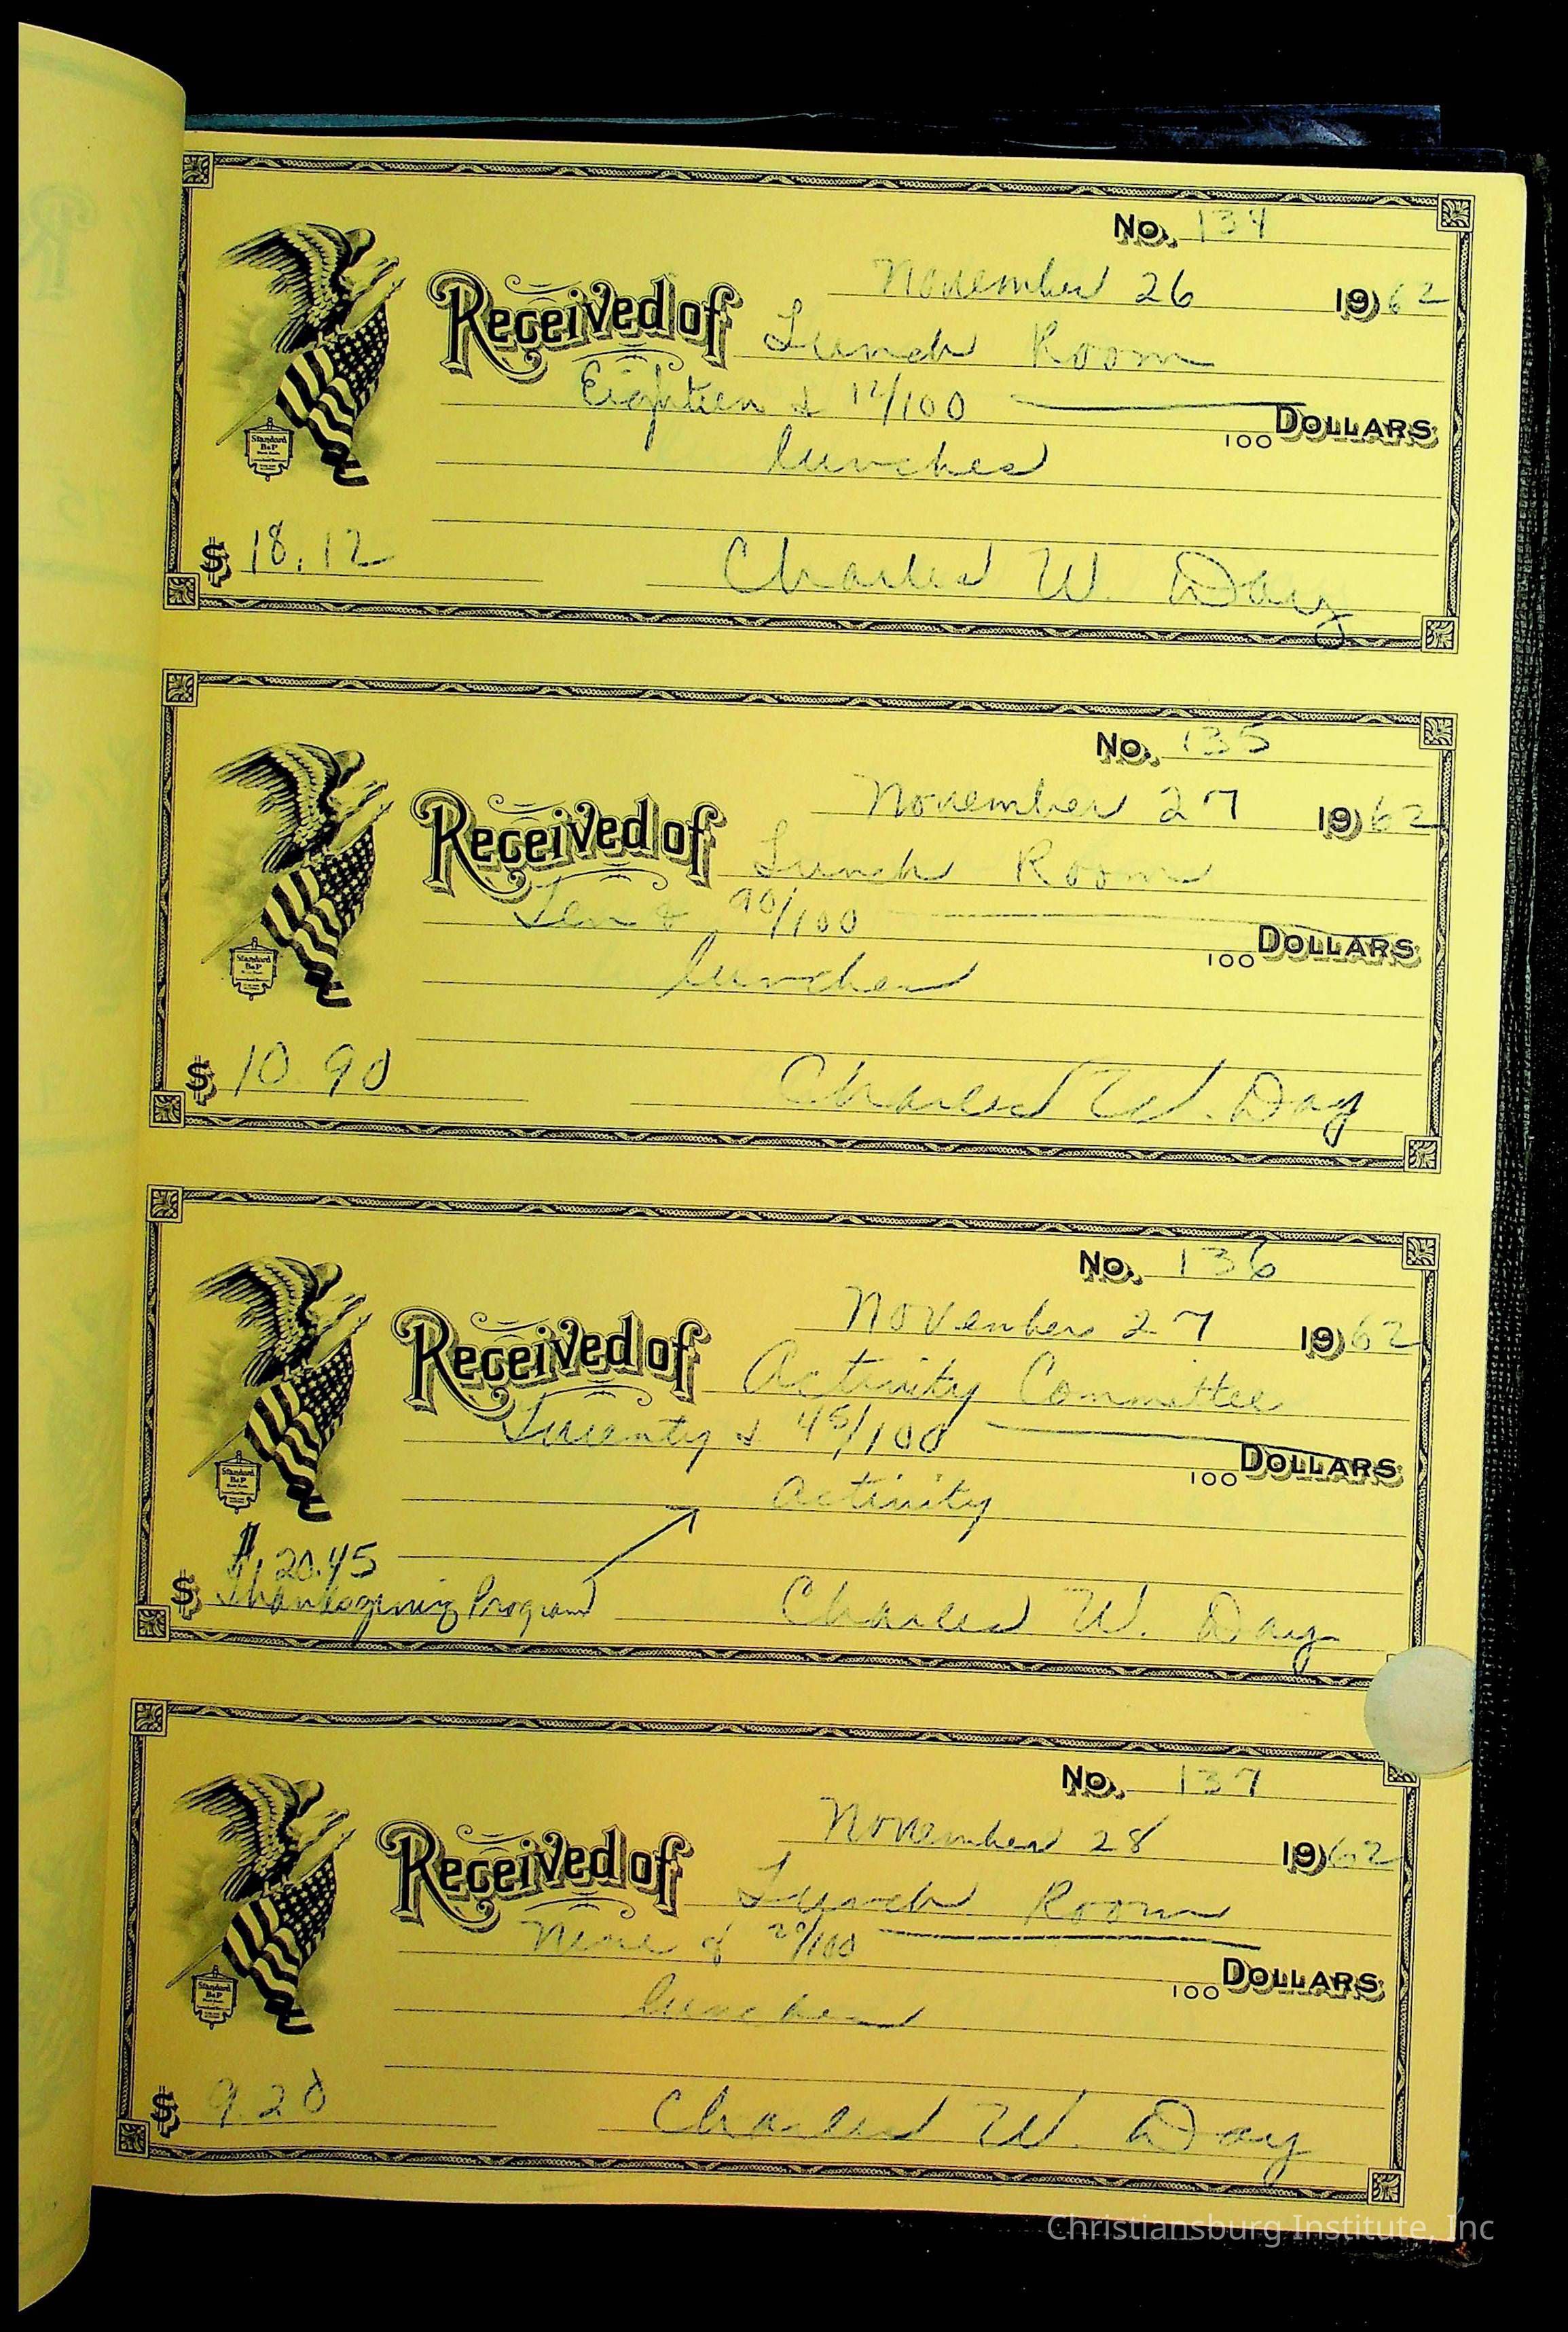 No. 134
November 26 1962
Received of Lunch Room
Eighteen & 12/100 100 DOLLARS
lunches
Standard B&P
$ 18.12 Charles W. Day
No. 135
November 27 1962
Received of Lunch Room
Ten & 90/100 100 DOLLARS
lunches
Standard B&P
$ 10.90 Charles W. Day
No. 136
November 27 1962
Received of Activity Committee
Twenty & 45/100 100 DOLLARS
Activity
Standard B&P
$ 20.45
$ Thanksgiving Program Charles W. Day
No. 137
November 28 1962
Received of Lunch Room
Nine & 20/100 100 DOLLARS
lunches
Standard B&P
$ 9.20 Charles W. Day
Christiansburg Institute, Inc